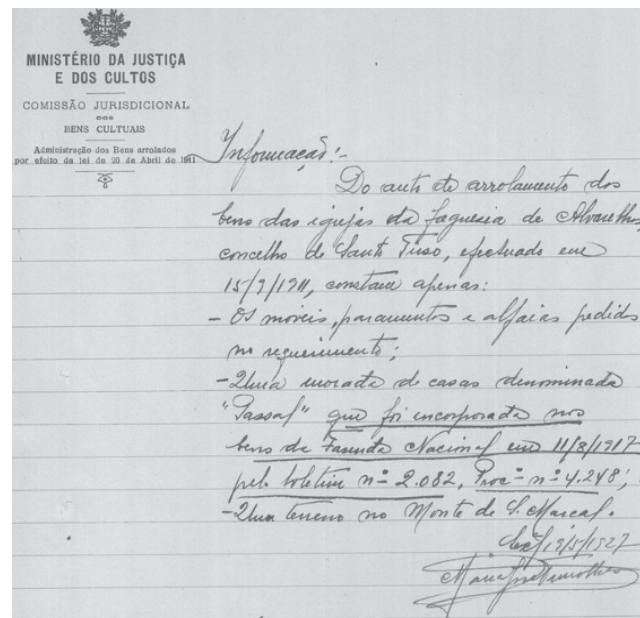 MINISTÉRIO DA JUSTIÇA
E DOS CULTOS
COMISSÃO JURISDICIONAL
DOS
BENS CULTUAIS
Administração dos Bens arrolados
por efeito da lei de 20 de Abril de 1911
Informação:-
Do auto de arrolamento dos
bens das igrejas da freguesia de Alvarelhos,
concelho de Santo Tirso, efectuado em
15/9/1911, constam apenas:
- Os moveis, paramentos e alfaias pedidos
no requerimento;
- Uma morada de casas denominada
"Passal" que foi incorporada nos
bens da Fazenda Nacional em 11/8/1917
pelo boletim nº 2.082, Procº nº 4.248;
- Um terreno no Monte de S. Marçal.
19/5/1927